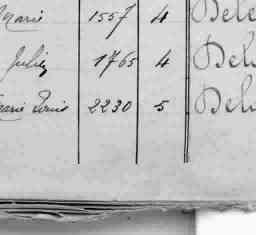 Marie 1557 4 Dele
Julien 1765 4 Del
Marie Louis 2230 5 Del